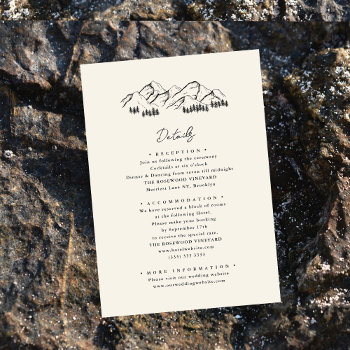 Details
• RECEPTION •
Join us following the ceremony
Cocktails at six o'clock
Dinner & Dancing from seven till midnight
THE ROSEWOOD VINEYARD
Merrilett Lane NY, Brooklyn
• ACCOMMODATION •
We have reserved a block of rooms
at the following Hotel.
Please make your booking
by September 17th
to receive the special rate.
THE ROSEWOOD VINEYARD
www.hotelwebsite.com
(555) 555 5555
• MORE INFORMATION •
Please visit our wedding website
www.ourweddingwebsite.com